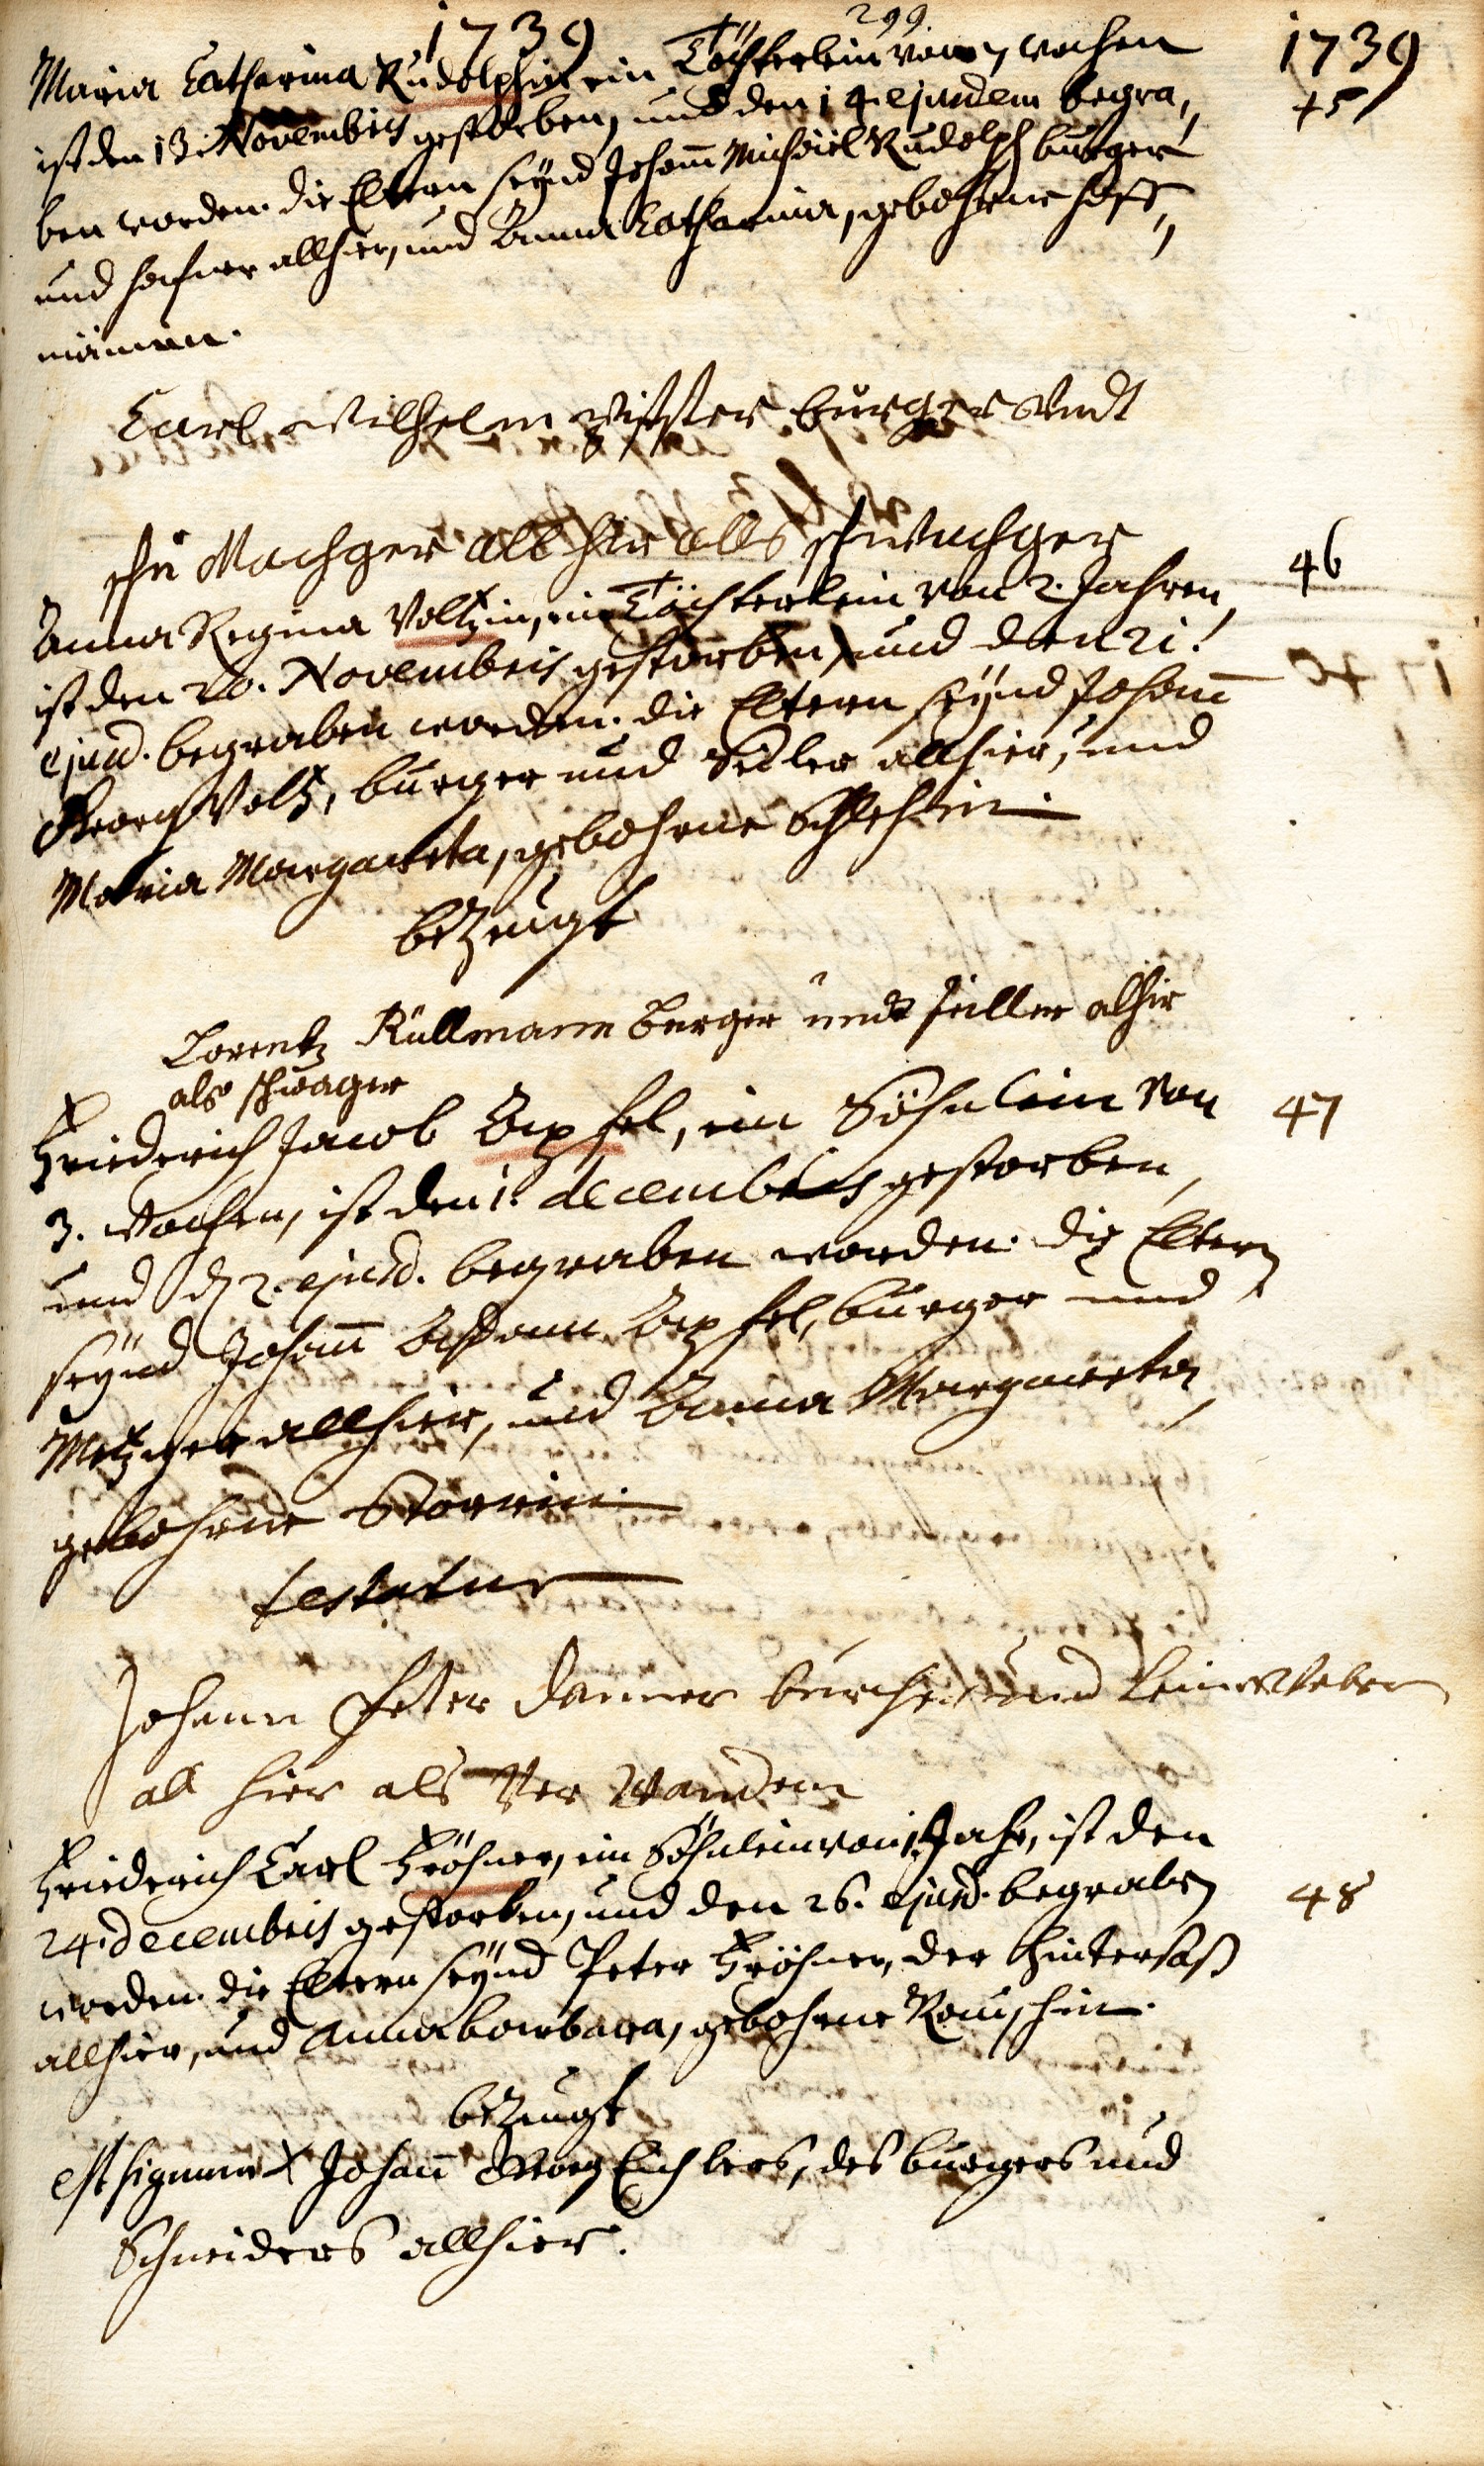 299.
1739
1739
Maria Catharina Rudolphin ein Töchterlein von 7 wochen
45
ist den 13. Novembris gestorben, und den 14. ejusdem begra,,
ben worden. die Eltern seynd Johann Michael Rudolph burger
und hafner allhier, und Anna Catharina, gebohrne Hoff,,
männin.
Carl Wilhelm burger Vndt
schu Machger all hir alls schwachger
46
Anna Regina Voltzin, ein Töchterlein von 2. Jahren,
ist den 20. Novembris gestorben, und den 21.
ejusd. begraben worden. die Eltern seynd Johann
Georg Voltz, burger und Seiler allhier, und
Maria Margareta, gebohrne
bezeugt
Lorentz Küllmann Burger undt seiller alhir
als schwager
Friederich Jacob Apfel, ein Söhnlein von
47
3. wochen, ist den 1. decembris gestorben,
und d 2. ejusd. begraben worden. die Eltern
seynd Johann Adam Apfel, burger und
Metzger allhier, und Anna Margareta,
gebohrne Storrin.
testatur
Johann Peter Danner burcher und Leinerweber
all hier als Ver Wanden
Friederich Carl Fröhner, ein Söhnlein von 1. Jahr, ist den
24. decembris gestorben, und den 26. ejusd. begraben
48
worden. die Eltern seynd Peter Fröhner, der Hintersaß
allhier, und Anna barbara, gebohrne Rauschin.
bezeugt
est signum x Johann Georg Eichlers, des burgers und
Schneiders allhier.